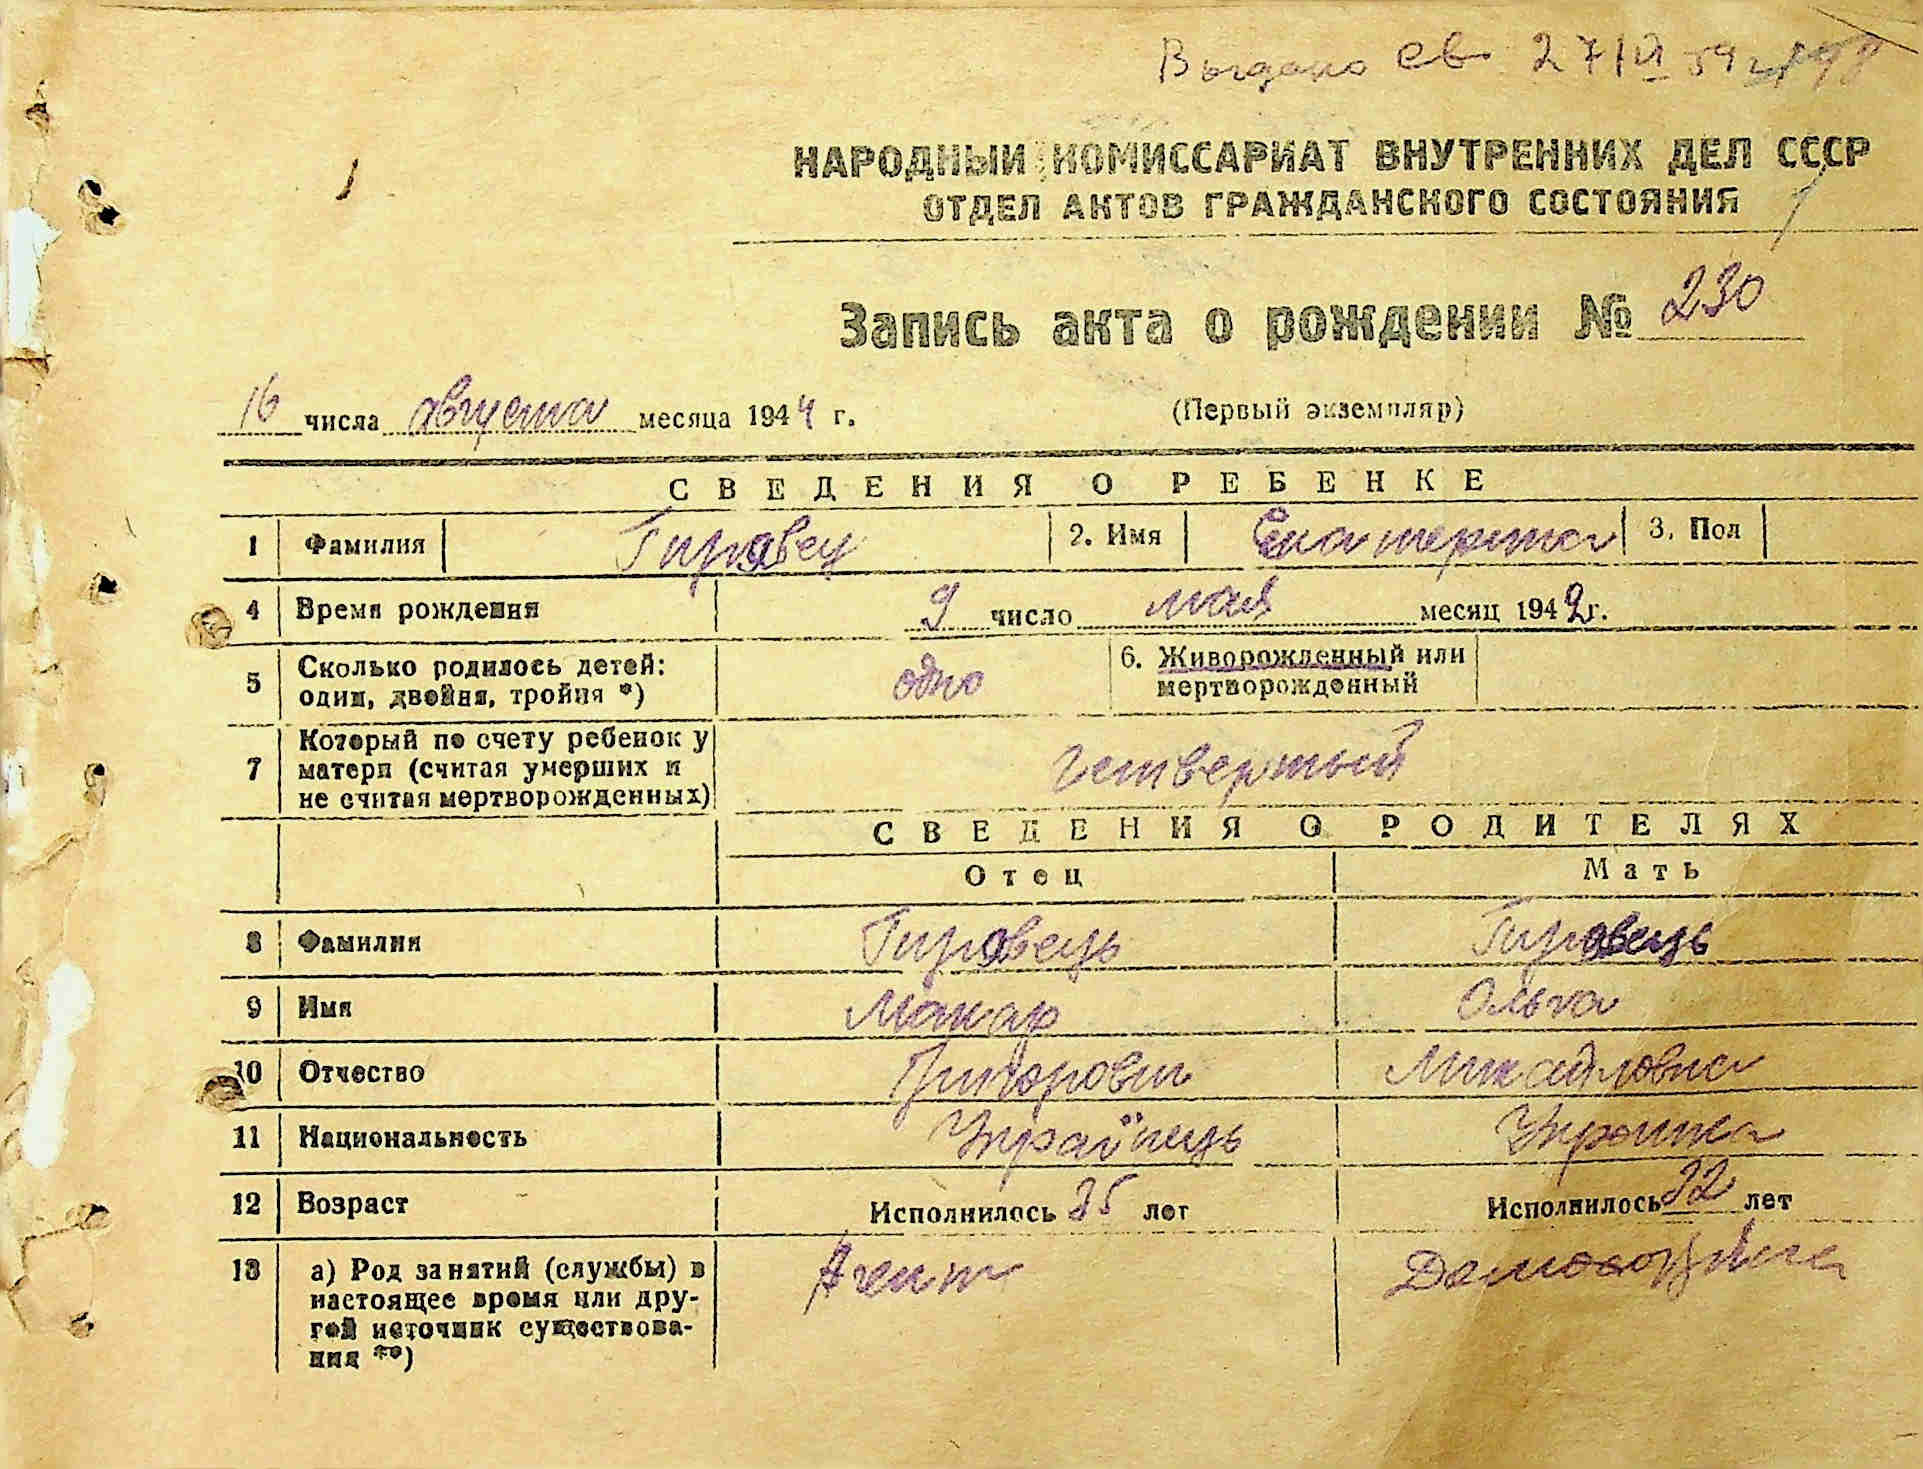 Выдано св 27/VI 59 г
НАРОДНЫЙ КОМИССАРИАТ ВНУТРЕННИХ ДЕЛ СССР
ОТДЕЛ АКТОВ ГРАЖДАНСКОГО СОСТОЯНИЯ
Запись акта о рождении № 230
16 числа августа месяца 1944 г. (Первый экземпляр)
СВЕДЕНИЯ О РЕБЕНКЕ
1 Фамилия Гировец 2. Имя Екатерина 3. Пол
4 Время рождения 9 число мая месяц 1942 г.
5 Сколько родилось детей: один, двойня, тройня *) одно 6. Живорожденный или мертворожденный
7 Который по счету ребенок у матери (считая умерших и не считая мертворожденных) четвертый
СВЕДЕНИЯ О РОДИТЕЛЯХ
Отец Мать
8 Фамилия Гировець Гировець
9 Имя Макар Ольга
10 Отчество Григорович Михайловна
11 Национальность Українець Украинка
12 Возраст Исполнилось 35 лет Исполнилось 32 лет
13 а) Род занятий (службы) в настоящее время или дру-
гой источник существова-
ния **) Агент Домохозяйка